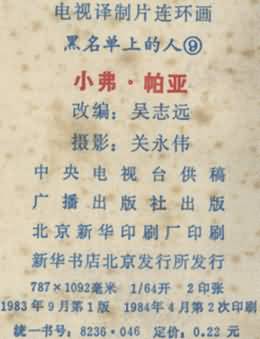 电视译制片连环画
黑名单上的人⑨
小弗·帕亚
改编：吴志远
摄影：关永伟
中央电视台供稿
广播出版社出版
北京新华印刷厂印刷
新华书店北京发行所发行
787×1092毫米 1/64开 2印张
1983年9月第1版 1984年4月第2次印刷
统一书号：8236·046 定价：0.22元